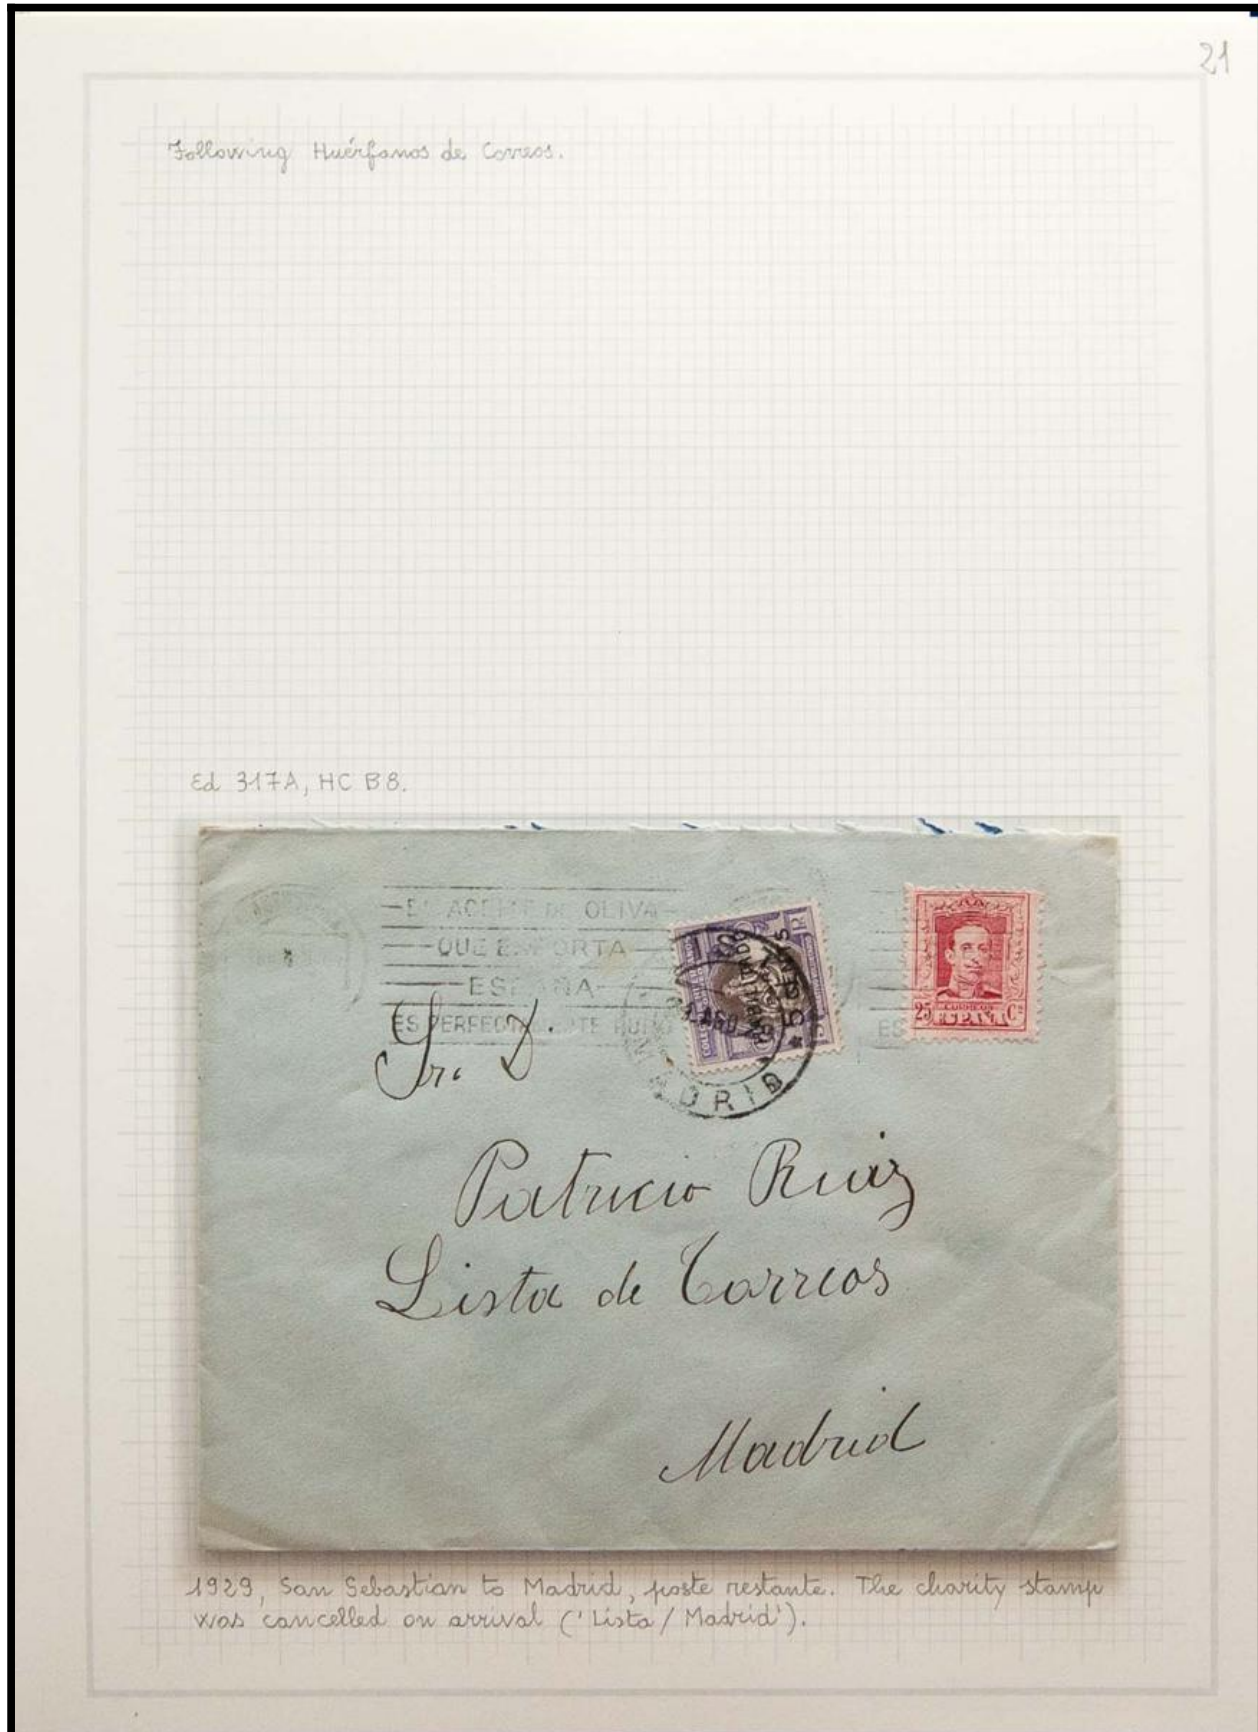 21
Following Huérfanos de Correos.
Ed 317A, HC B8.
DE OLIVA
QUE EXPORTA
ESPAÑA
ES
5
25 CORREOS Cs
ESPAÑA
MADRID
Sr. D.
Patricio Ruiz
Lista de Correos
Madrid
1929, San Sebastian to Madrid, poste restante. The charity stamp
was cancelled on arrival ('Lista / Madrid').